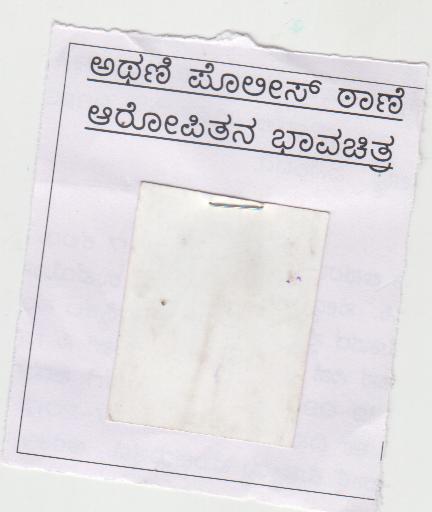 ಅಥಣಿ ಪೊಲೀಸ್ ಠಾಣೆ
ಆರೋಪಿತನ ಭಾವಚಿತ್ರ